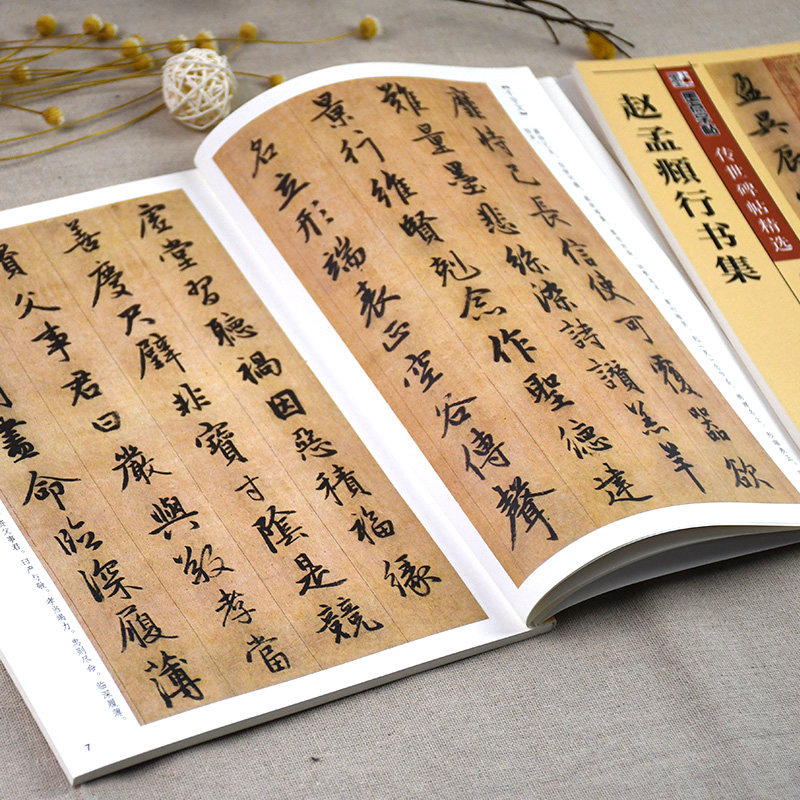 靡恃己長信使可覆器欲
難量墨悲絲染詩讚羔羊
景行維賢剋念作聖德建
名立形端表正空谷傳聲
虛堂習聽禍因惡積福緣
善慶尺璧非寶寸陰是競
資父事君曰嚴與敬孝當
盡命臨深履薄
父事君。曰严与敬。孝当竭力。忠则尽命。临深履薄。
7
墨点字帖
传世碑帖精选
赵孟頫行书集
盈昃辰